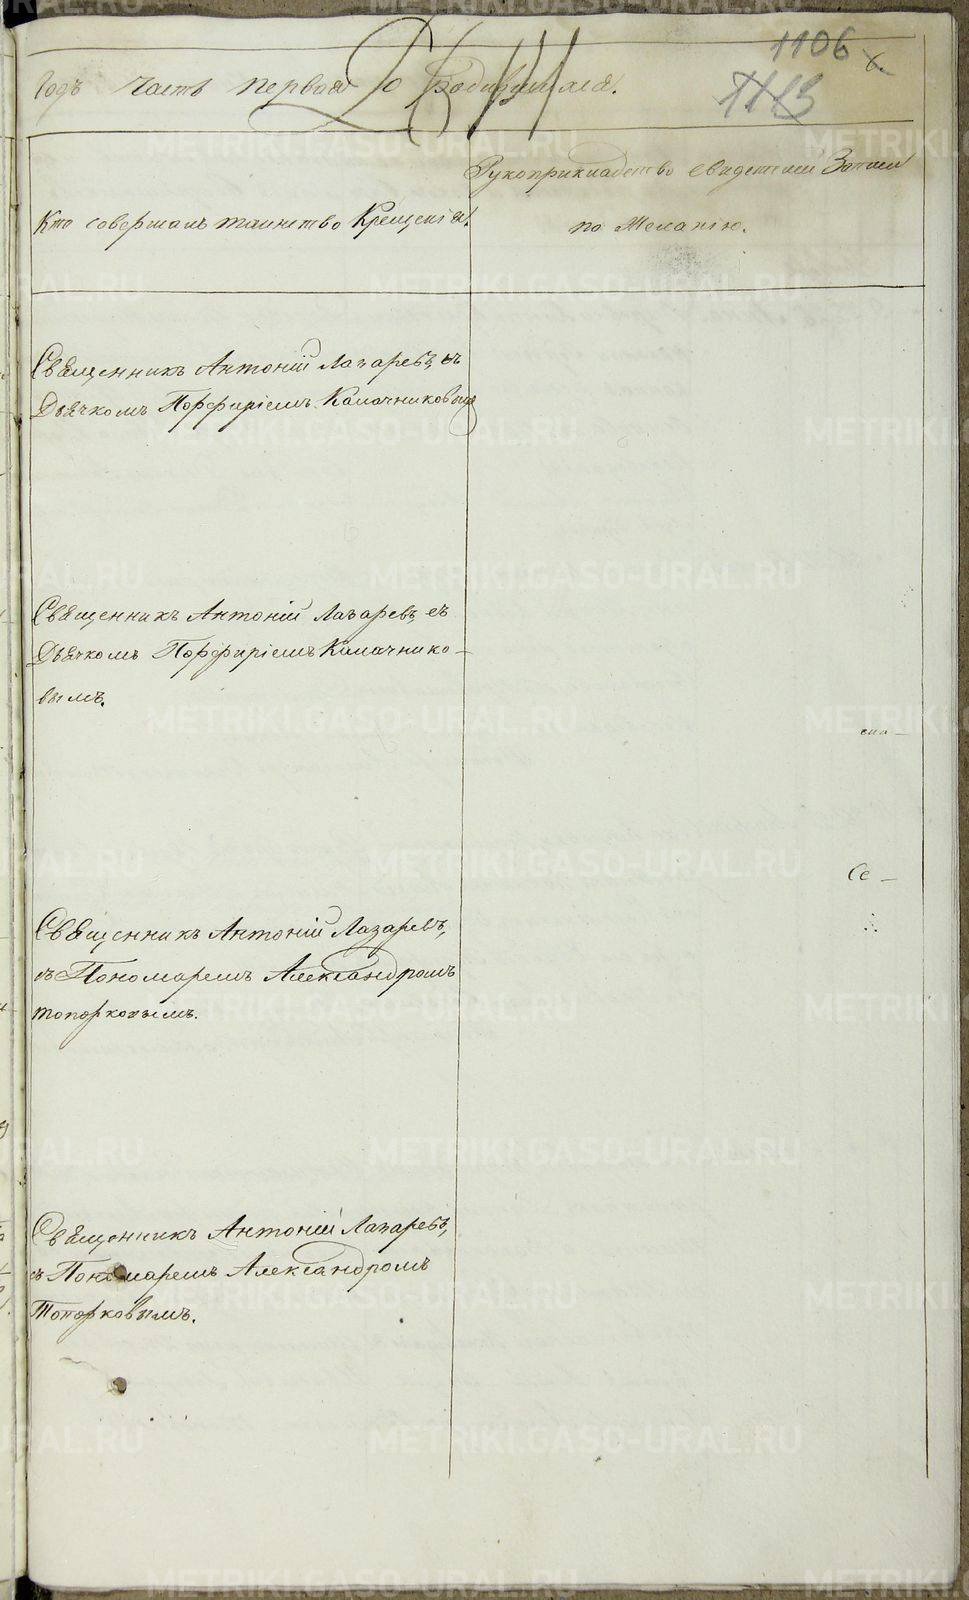 1106
6.
1113
Годъ Часть первая о Родившихся.
Кто совершалъ таинство Крещенія.
Рукоприкладство свидетелей Записи
по Желанію.
Священникъ Антоній Лазаревъ, съ
Дьячкомъ Порфиріемъ Калачниковымъ
Священникъ Антоній Лазаревъ, съ
Дьячкомъ Порфиріемъ Калачнико-
вымъ.
Се-
Священникъ Антоній Лазаревъ,
съ Пономаремъ Александромъ
топорковымъ.
Священникъ Антоній Лазаревъ,
съ Пономаремъ Александромъ
Топорковымъ.
METRIKI.GASO-URAL.RU